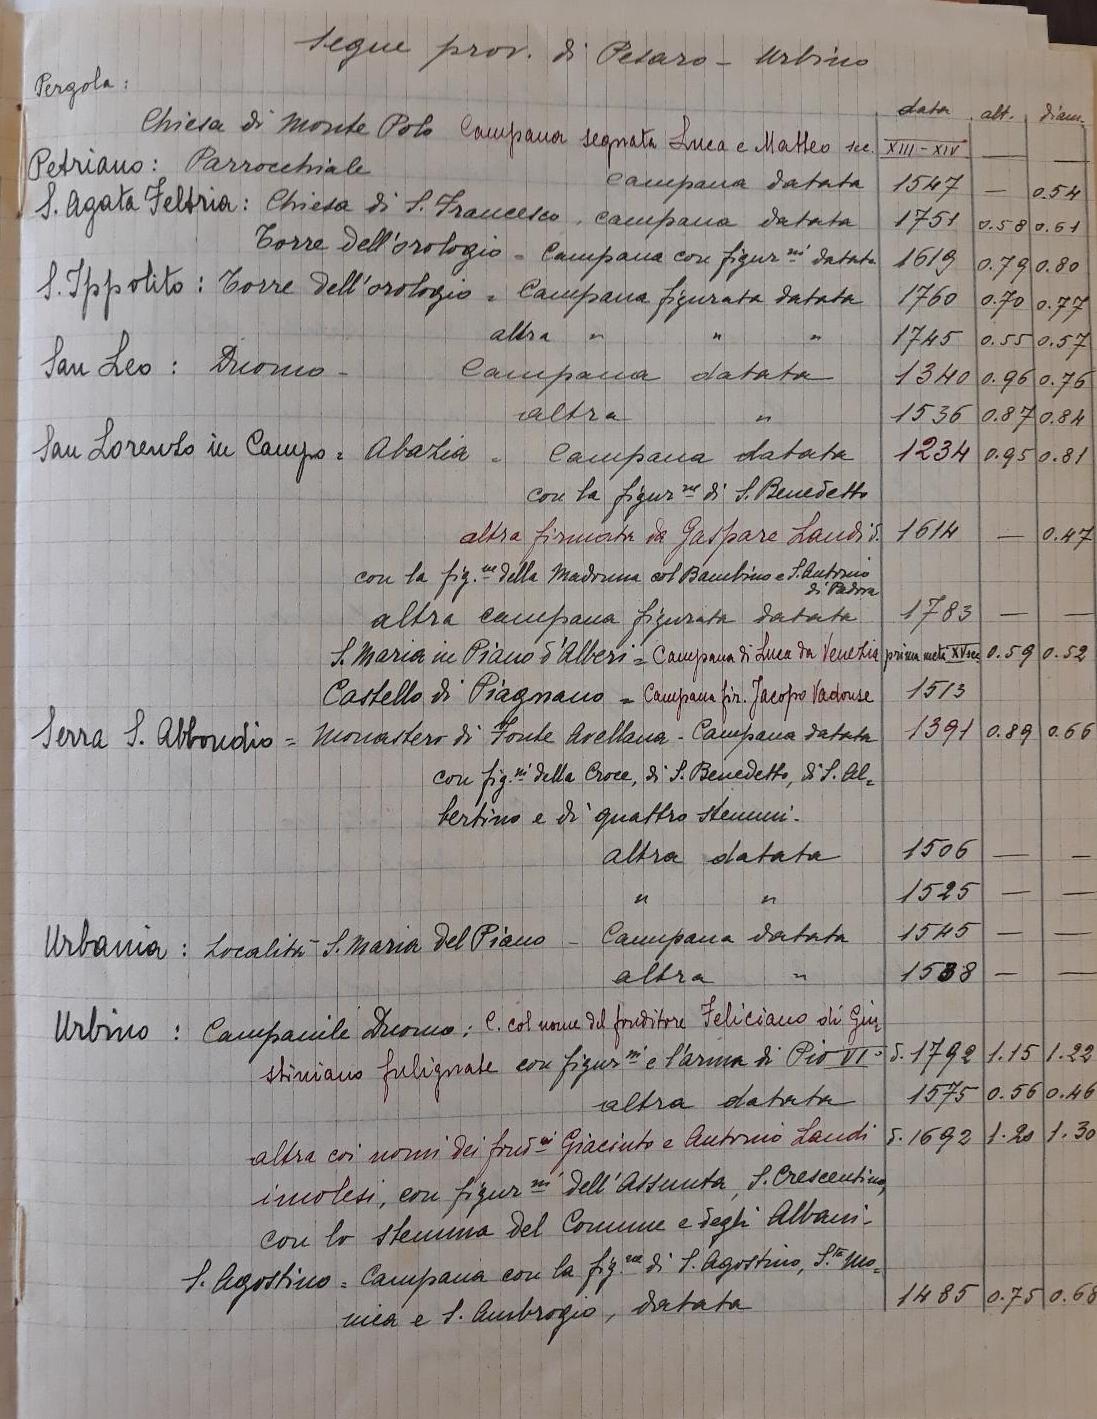 Segue prov. di Pesaro - Urbino
Pergola:
data alt. diam.
Chiesa di Monte Polo Campana segnata Luca e Matteo sec. XIII-XIV — —
Petriano: Parrocchiale campana datata 1547 — 0.54
S. Agata Feltria: Chiesa di S. Francesco. campana datata 1751 0.58 0.61
Torre dell'orologio = Campana con figur.ni datata 1619 0.79 0.80
S. Ippolito: Torre dell'orologio = Campana figurata datata 1760 0.70 0.77
altra " " " 1745 0.55 0.57
San Leo: Duomo - Campana datata 1340 0.96 0.76
altra " 1536 0.87 0.84
San Lorenzo in Campo = Abazia = Campana datata 1234 0.95 0.81
con la figur.ne di S. Benedetto
altra firmata da Gaspare Landi d. 1614 — 0.47
con la fig.ne della Madonna col Bambino e S. Antonio
di Padova
altra campana figurata datata 1783 — —
S. Maria in Piano d'Alberi = Campana di Luca da Venezia prima metà XV sec. 0.59 0.52
Castello di Piagnano = Campana fir. Jacopo 1513
Serra S. Abbondio = Monastero di Fonte Avellana - Campana datata 1391 0.89 0.66
con fig.ni della Croce, di S. Benedetto, di S. Al=
bertino e di quattro stemmi.
altra datata 1506 — —
" " 1525 — —
Urbania: Località S. Maria del Piano - Campana datata 1545 — —
altra " 1538 — —
Urbino: Campanile Duomo: C. col nome del fonditore Feliciano di Giu
stiniano fulignate con figur.ni e l'arma di Pio VI = d. 1792 1.15 1.22
altra datata 1575 0.56 0.46
altra coi nomi dei fond.ri Giacinto e Antonio Landi d. 1692 1.20 1.30
imolesi, con figur.ni dell'Assunta, S. Crescentino,
con lo stemma del Comune e degli Albani.
S. Agostino = Campana con la fig.ne di S. Agostino, S.ta Mo=
nica e S. Ambrogio, datata 1485 0.75 0.68